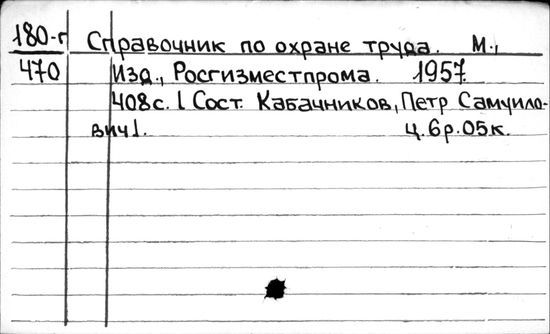 180-г Справочник по охране труда. М.,
470 Изд., Росгизместпрома. 1957.
408с. [Сост. Кабачников, Петр Самуило-
вич]. ц. 6р. 05к.